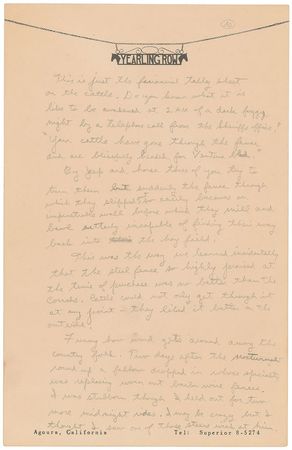 YEARLING ROW
This is just the financial tally sheet
on the cattle. Do you know what it is
like to be awakened at 2 AM of a dark foggy
night by a telephone call from the Sheriffs office?
"Your cattle have gone through the fence
and are blissfully headed for Ventura Blvd."
By jeep and horse three of you try to
turn them but suddenly the fence through
which they slipped so easily becomes an
impenetrable wall before which they mill and
bawl utterly incapable of finding their way
back into the hay field.
This was the way we learned incidentally
that the steel fence so highly praised at
the time of purchase was no better than the
Corrals. Cattle could not only get through it
at any point – they liked it better on the
outside.
Funny how word gets around among the
country folk. Two days after the nocturnal
round up a fellow dropped in whose specialty
was replacing worn out barb wire fences.
I was stubborn though I held out for two
more midnight rides. I may be crazy but I
thought I saw one of those steers wink at him.
Agoura, California Tel: Superior 8-5274